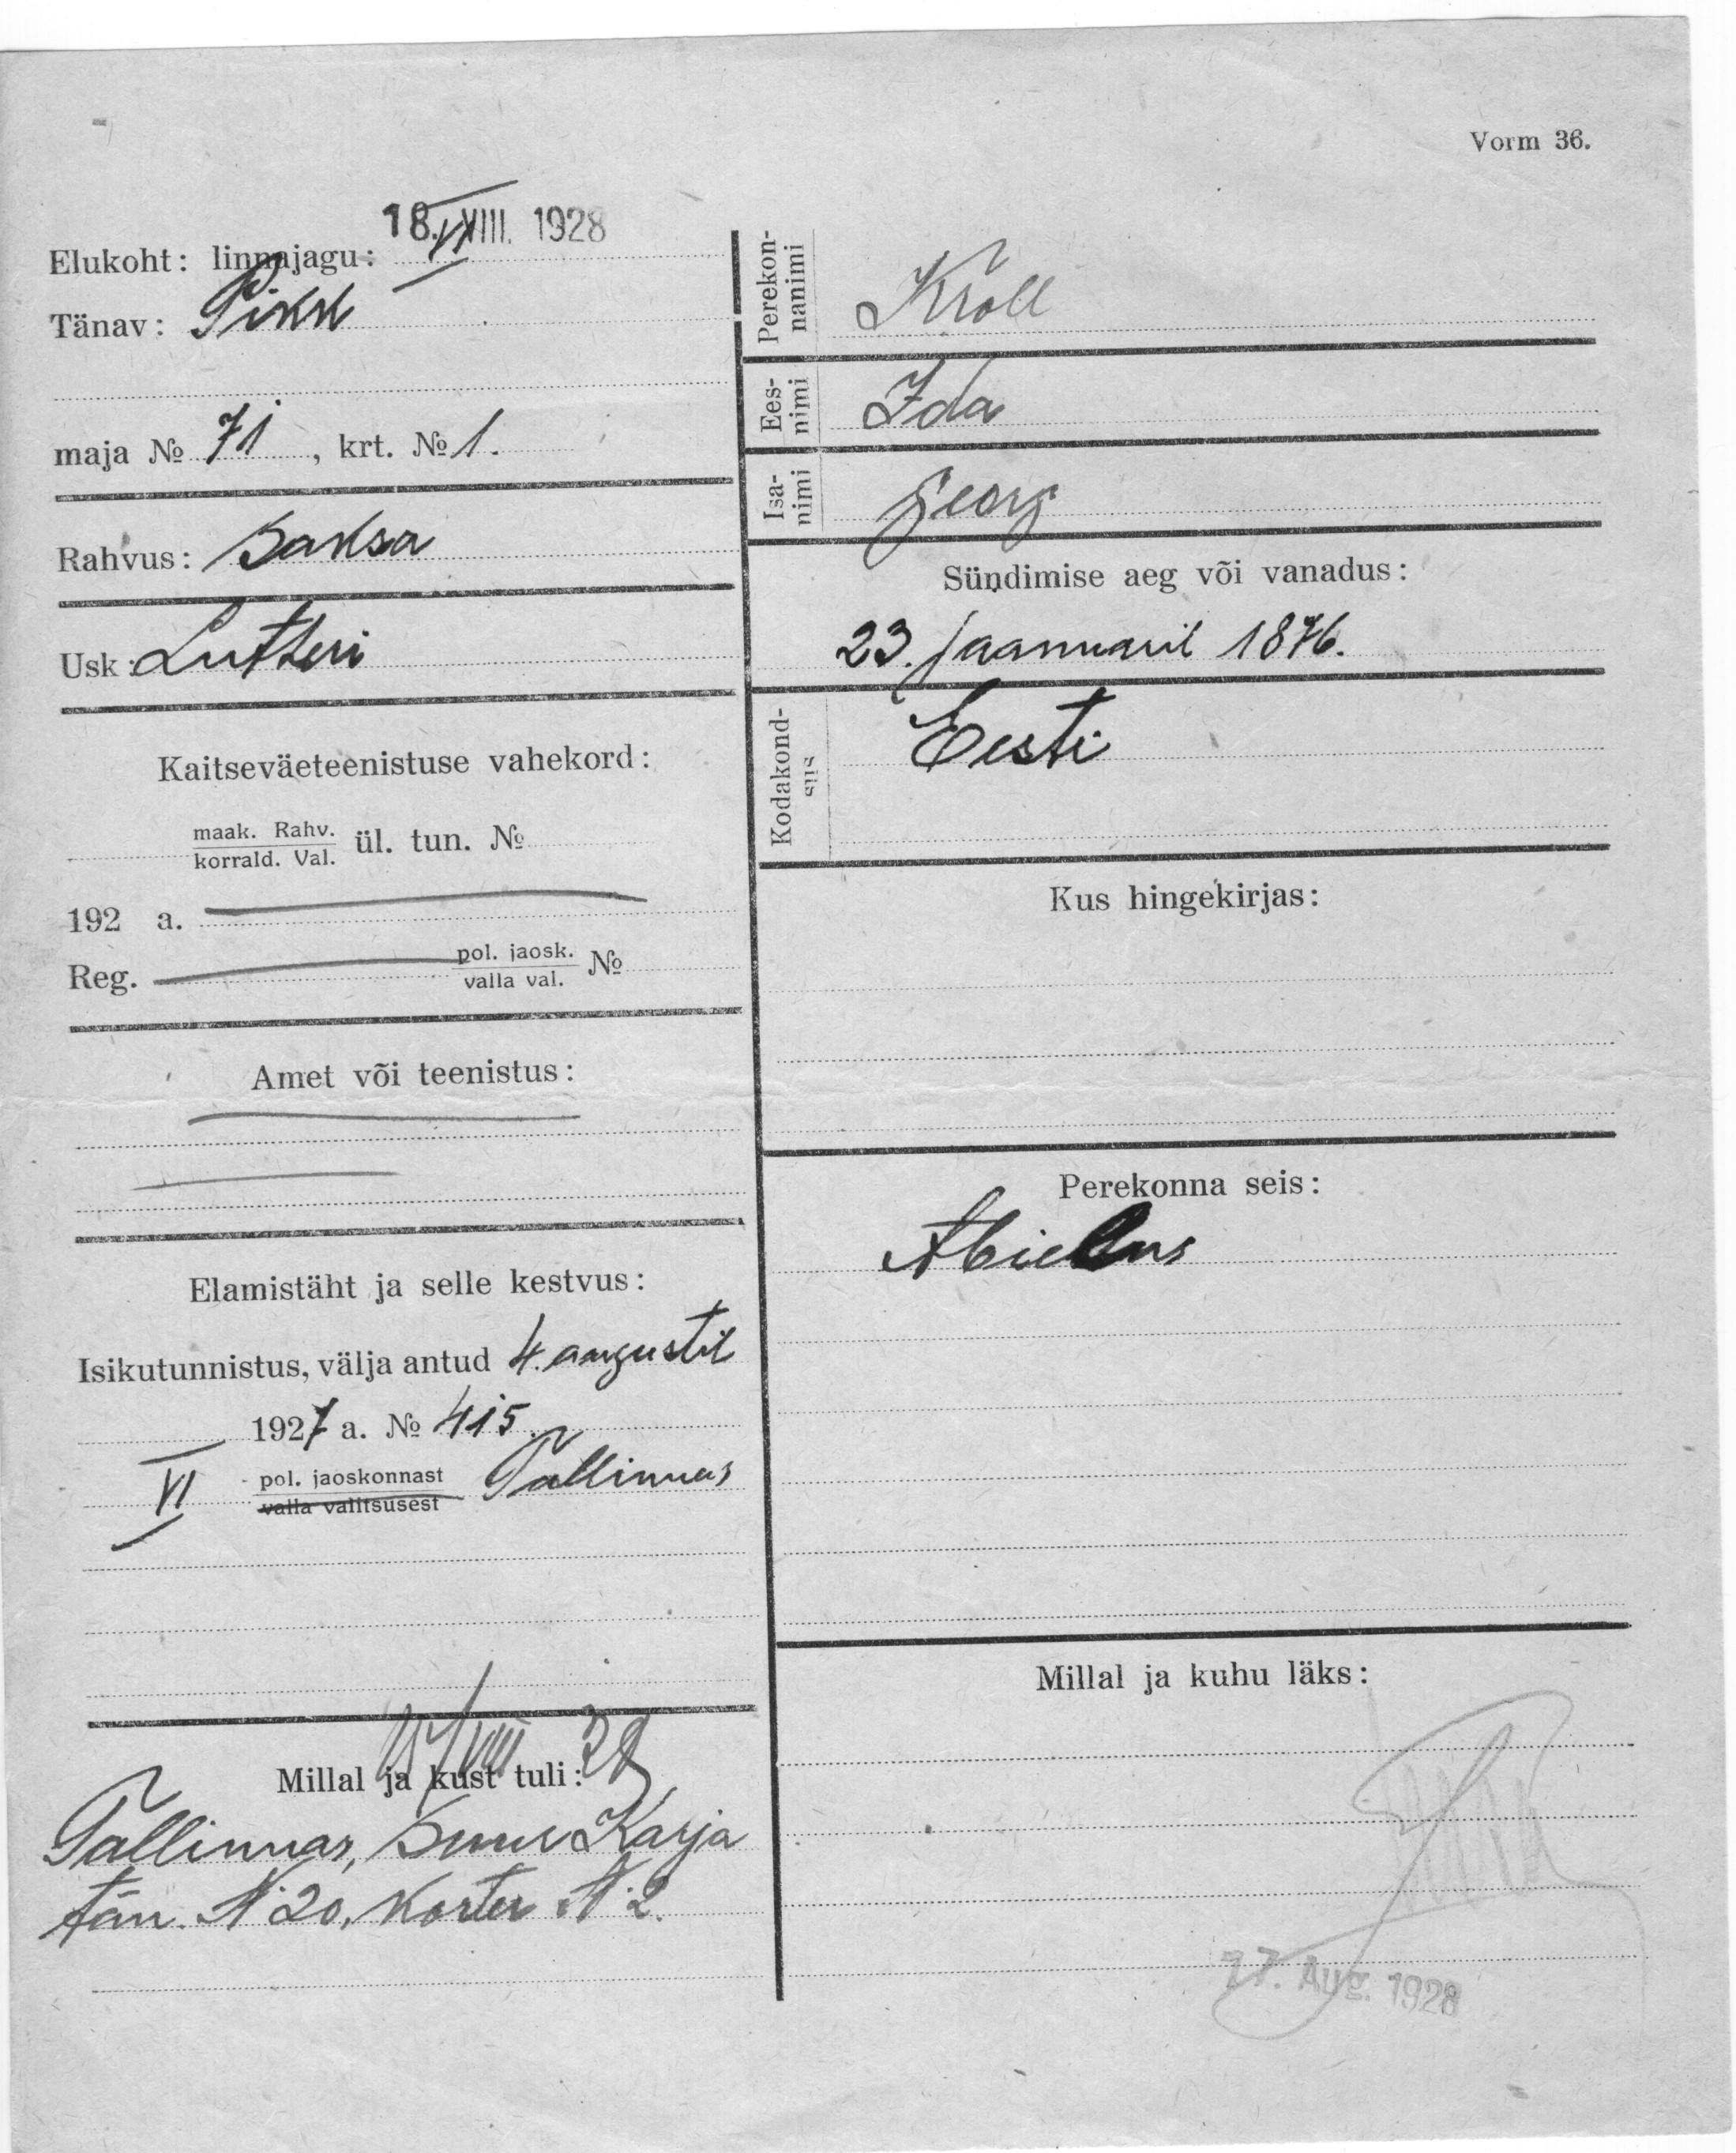 Vorm 36.
18. VIII. 1928
Elukoht: linnajagu: VI
Tänav: Pikk
maja № 71, krt. № 1.
Rahvus: Saksa
Usk: Lutheri
Kaitseväeteenistuse vahekord:
maak. Rahv.
korrald. Val. ül. tun. №
192 a.
Reg. pol. jaosk. №
valla val.
Amet või teenistus:
Elamistäht ja selle kestvus:
Isikutunnistus, välja antud 4. augustil
1927 a. № 415.
VI pol. jaoskonnast Tallinnas
valla valitsusest
Millal ja kust tuli:
Tallinnas, Suur Karja
tän. N 20, korter N 2.
Perekon-
nanimi Kroll
Ees-
nimi Ida
Isa-
nimi Georg
Sündimise aeg või vanadus:
23. jaanuaril 1876.
Kodakond-
sus Eesti
Kus hingekirjas:
Perekonna seis:
Abielus
Millal ja kuhu läks:
Aug. 1928